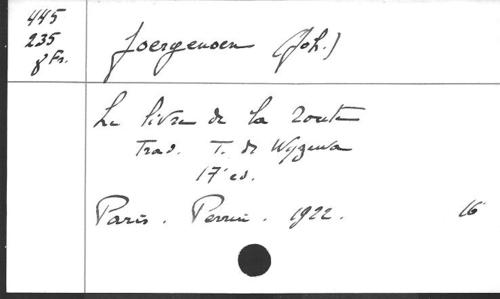 445
235
8 Fr.
Joergensen (Joh.)
Le livre de la route
Trad. T. de Wyzewa
17 ed.
Paris. Perrin. 1922. 16